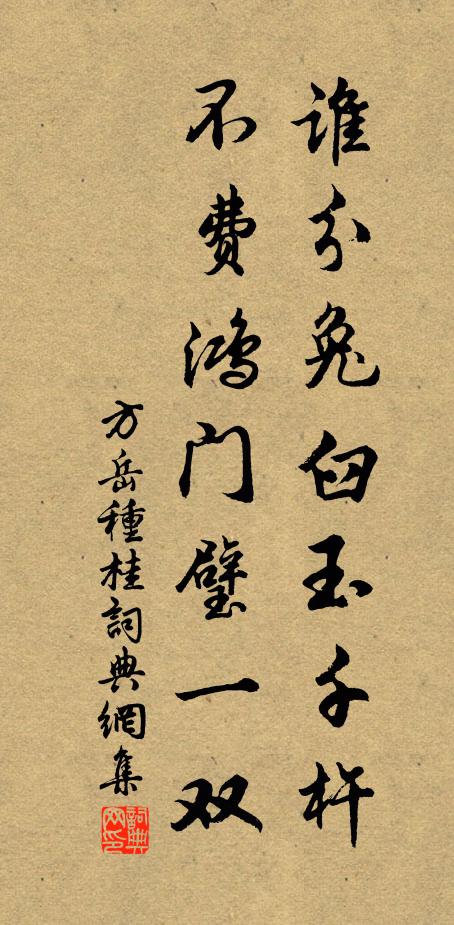 誰分兔臼玉千杵
不费鴻门璧一双
方岳種桂詞典網集
詞典网印